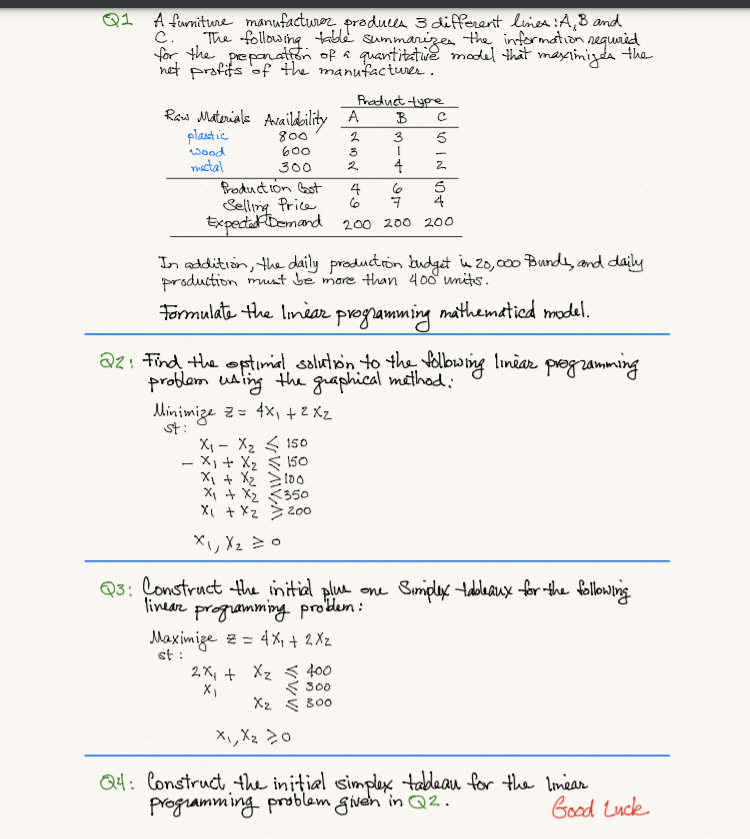 Q1 A furniture manufacturer produces 3 different lines: A, B and
C. The following table summarizes the information required
for the preparation of a quantitative model that maximizes the
net profits of the manufacturer.
Product type
Raw Materials Availability A B C
plastic 800 2 3 5
wood 600 3 1 -
metal 300 2 4 2
Production Cost 4 6 5
Selling Price 6 7 4
Expected Demand 200 200 200
In addition, the daily production budget is 20,000 Pounds, and daily
production must be more than 400 units.
Formulate the linear programming mathematical model.
Q2: Find the optimal solution to the following linear programming
problem using the graphical method:
Minimize z = 4x₁ + 2x₂
st:
x₁ - x₂ ≤ 150
- x₁ + x₂ ≤ 150
x₁ + x₂ ≥ 100
x₁ + x₂ ≤ 350
x₁ + x₂ ≥ 200
x₁, x₂ ≥ 0
Q3: Construct the initial plus one Simplex tableaux for the following
linear programming problem:
Maximize z = 4x₁ + 2x₂
st:
2x₁ + x₂ ≤ 400
x₁ ≤ 300
x₂ ≤ 300
x₁, x₂ ≥ 0
Q4: Construct the initial simplex tableau for the linear
programming problem given in Q2.
Good Luck